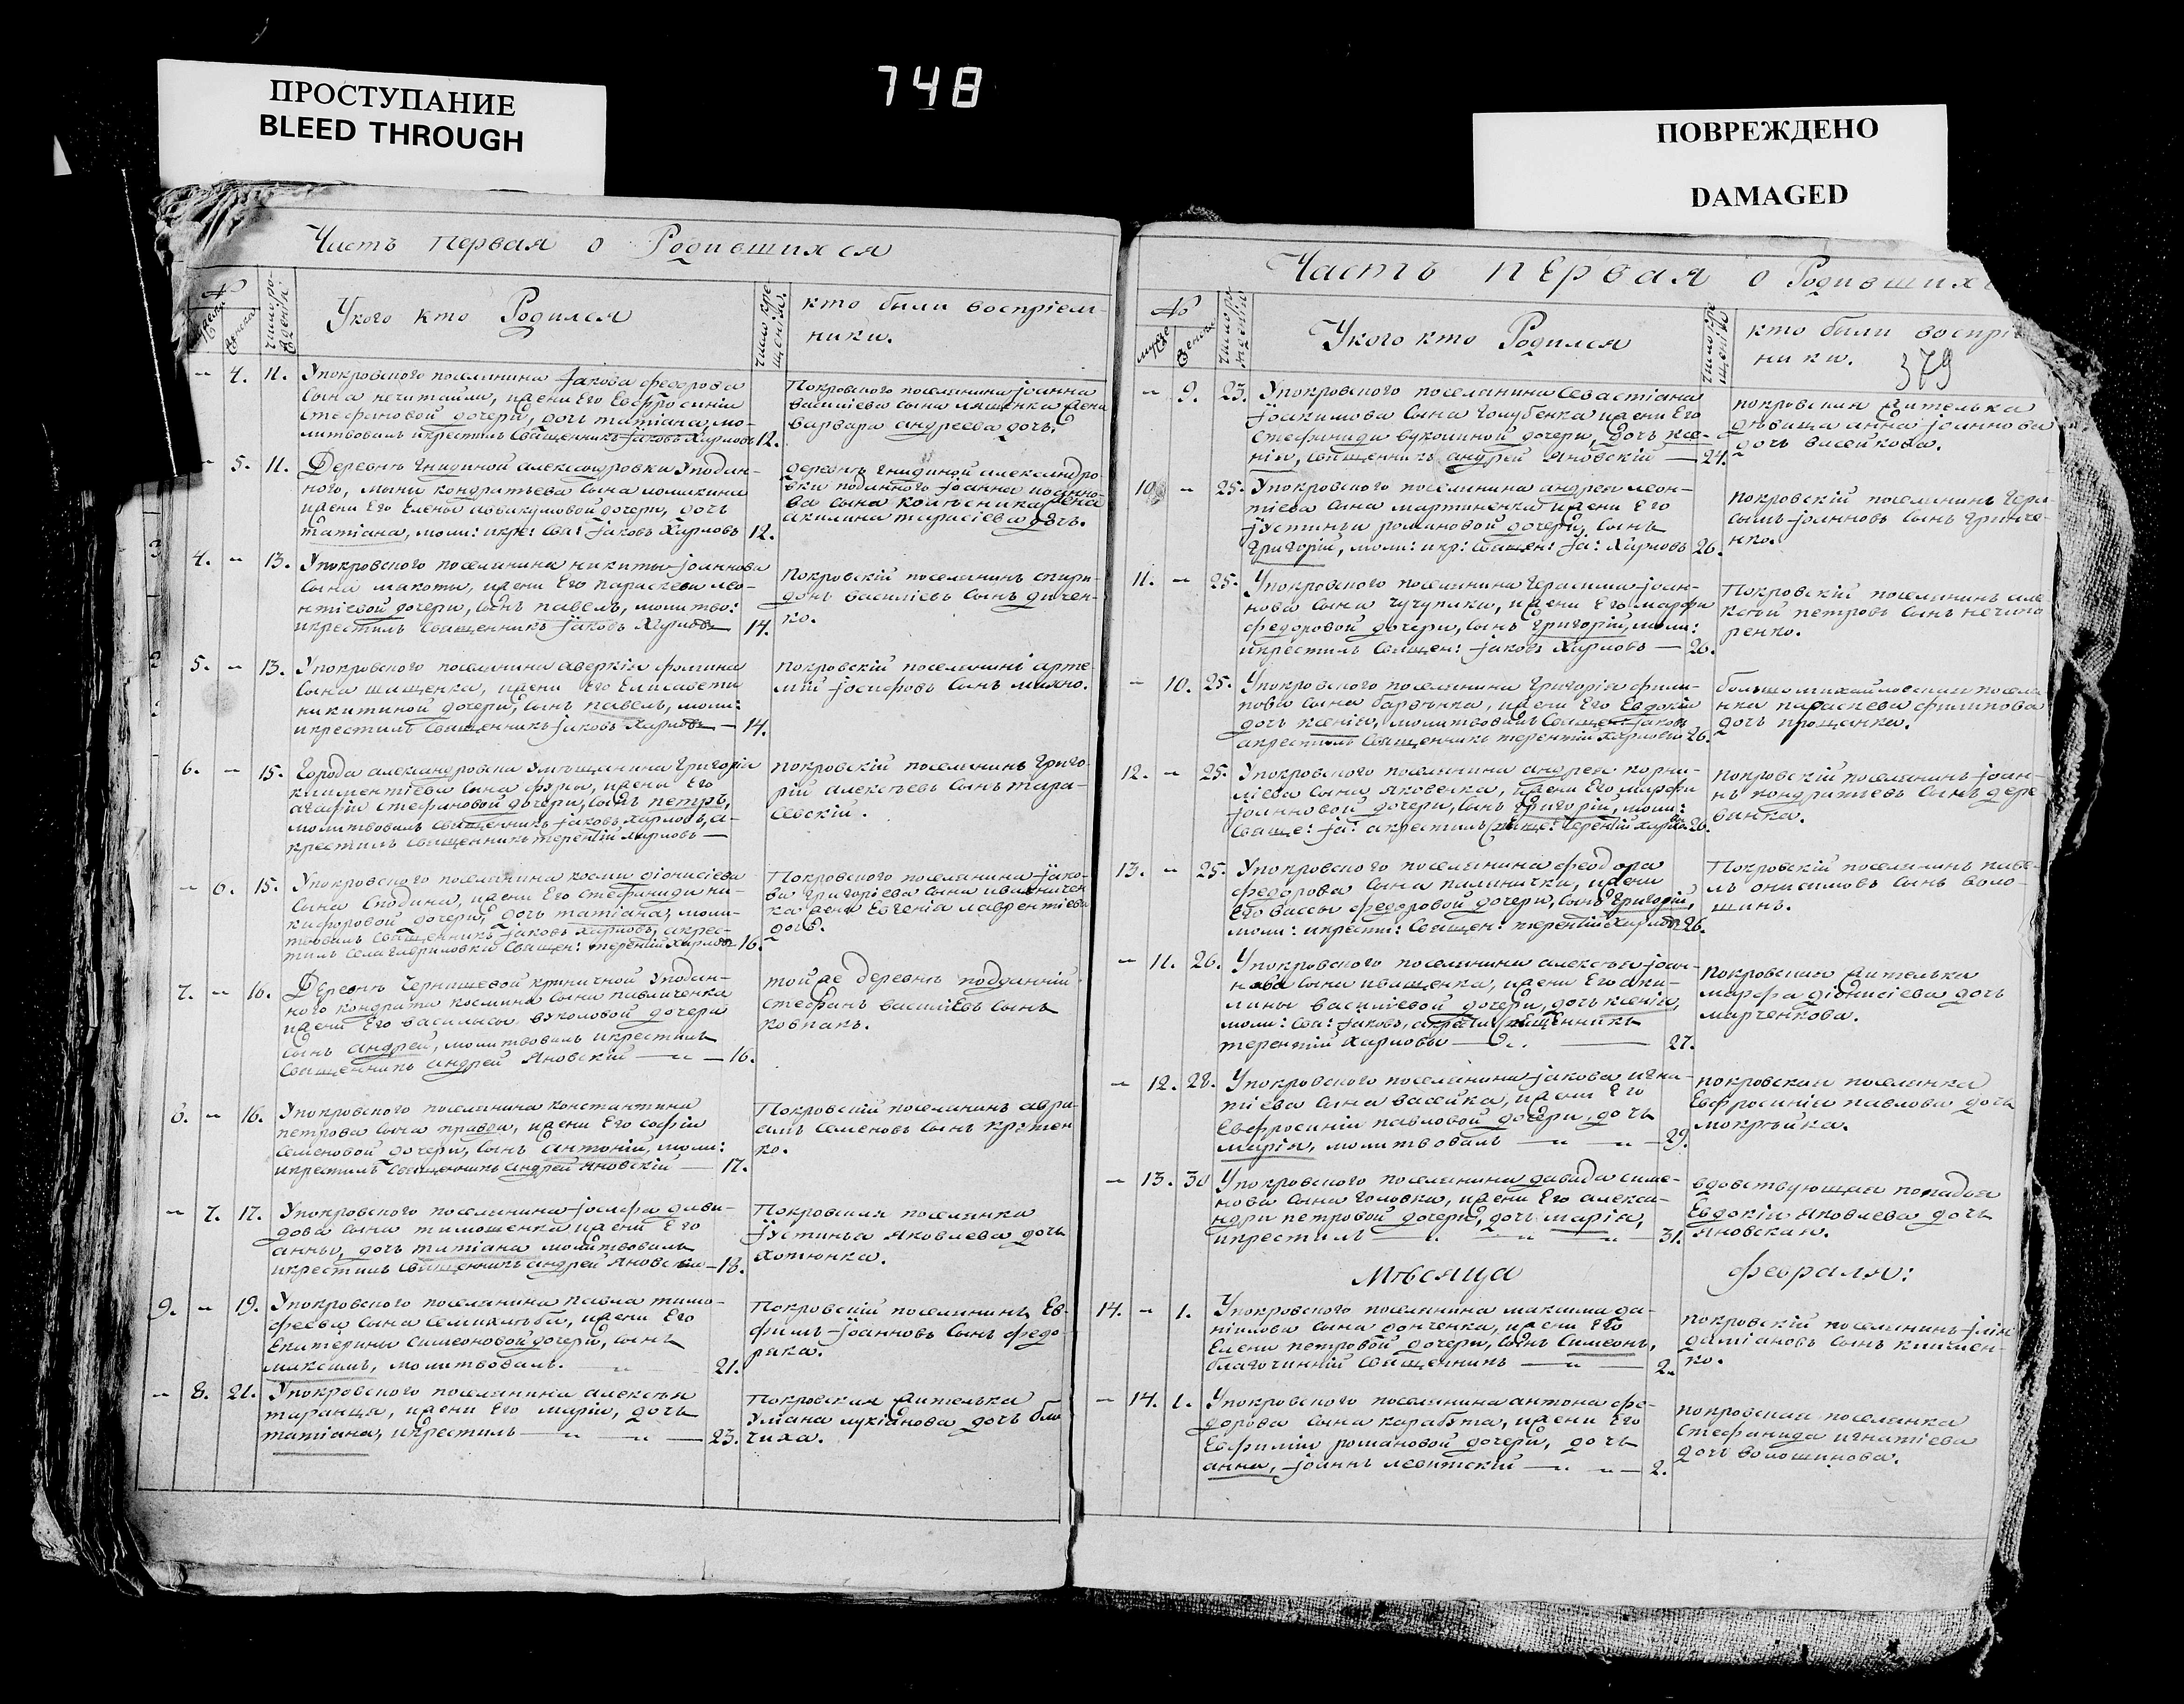 748
ПРОСТУПАНИЕ
BLEED THROUGH
ПОВРЕЖДЕНО
DAMAGED
Часть первая о Родившихся
№
Укого кто Родился
кто были восприем
ники.
4. 11. Упокровского поселянина Јакова федорова
сына нечитайла, ижены Его Евфросиніи
стефановой дочери, дочь татіана, мо-
литвовалъ икрестилъ Священникъ Јаковъ Харловъ 12.
Покровского поселянина Јоанна
василіева сына жена
варвара андреева дочь.
5. 11. Деревнѣ гнидиной александровки Уподан-
ного, кондратьева сына
ижены Его Елены аввакумовой дочери, дочь
татіана, моли: икре: Свя: Јаковъ Харловъ 12.
деревнѣ гнидиной александро
вки поданного Јоанна иоанно-
ва сына жена
акилина тарасіева дочь.
4. - 13. Упокровского поселянина никиты Јоаннова
сына макоты, ижены Его параскевы лео-
нтіевой дочери, сынъ павелъ, молитво:
икрестилъ Священникъ Јаковъ Харловъ 14.
Покровскій поселянинъ спири-
донъ василіевъ сынъ дичен-
ко.
5. - 13. Упокровского поселянина аверкія фомина
сына шищенка, ижены Его Елисаветы
никитиной дочери, сынъ павелъ, моли:
икрестилъ Священникъ Јаковъ Харловъ — 14.
покровскій поселянинъ арте-
мій Јосифовъ сынъ махно.
6. - 15. Города александровска Умѣщанина григорія
климентіева сына ижены Его
агафіи стефановой дочери, сынъ петръ,
молитвовалъ Священникъ Јаковъ Харловъ, а-
крестилъ Священникъ терентій Харловъ —
покровскій поселянинъ григо-
рій алексѣевъ сынъ тара-
севскій.
- 6. 15. Упокровского поселянина космы діонисіева
сына ижены Его стефаниды ни-
кифоровой дочери, дочь татіана, моли-
твовалъ Священникъ Јаковъ Харловъ, акрес-
тилъ села гавриловки Священ: терентій Харловъ 16.
Покровского поселянина Јако-
ва григоріева сына иваничен
ка жена Евгенія лаврентіева
дочь.
7. - 16. Деревнѣ Чернишевой криничной Уподан-
ного кондрата космина сына павличенка
ижены Его василисы вуколовой дочери
сынъ андрей, молитвовалъ икрестилъ
Священникъ андрей Яновскій — 16.
той же деревнѣ подданній
стефанъ василіевъ сынъ
ковпакъ.
8. - 16. Упокровского поселянина константина
петрова сына ижены Его софіи
семеновой дочери, сынъ антоній, моли:
икрестилъ Священникъ андрей Яновскій — 17.
Покровскій поселянинъ авра-
амъ семеновъ сынъ
ко.
- 7. 17. Упокровского поселянина Јосифа дави-
дова сына тимошенка ижены Его
анны, дочь татіана молитвовалъ
икрестилъ Священникъ андрей Яновскій — 18.
Покровская поселянка
Јустинья Яковлева дочь
хотюнка.
9. - 19. Упокровского поселянина павла тимо-
феева сына ижены Его
Екатерины симеоновой дочери, сынъ
максимъ, молитвовалъ. 21.
Покровскій поселянинъ Ев-
фимъ Јоанновъ сынъ федо-
ряка.
- 8. 21. Упокровского поселянина алексѣя
таранца, ижены Его маріи, дочь
татіана, икрестилъ — 23.
Покровская жителька
Уліана лукіянова дочь
Часть первая о Родивших
№
379
Укого кто Родился
кто были воспріе
ники.
- 9. 23. Упокровского поселянина Севастіана
Јоакимова сына голубенка ижены Его
стефаниды вукомной дочери, дочь ксе-
нія, Священникъ андрей Яновскій — 24.
покровская жителька
дѣвица анна Јоаннова
дочь васейкова.
10. - 25. Упокровского поселянина андрея леон-
тіева сына мартиненка ижены Его
Јустиньи романовой дочери, сынъ
григорій, моли: икр: Священ: Ја: Харловъ 26.
покровскій поселянинъ гера-
симъ Јоанновъ сынъ гринче-
нко.
11. - 25. Упокровского поселянина герасима Јоан-
нова сына чучупака, ижены Его марфы
федоровой дочери, сынъ григорій, моли:
икрестилъ Священ: Јаковъ Харловъ — 26.
Покровскій поселянинъ але
ксѣй петровъ сынъ нечипо
ренко.
- 10. 25. Упокровского поселянина григорія фили-
пова сына ижены Его Евдокіи
дочь ксенія, молитвовалъ Священ: Јаковъ
акрестилъ Священникъ терентій Харловъ 26.
большомихайловская посел-
нка параскева филипова
дочь
12. - 25. Упокровского поселянина андрея корни-
ліева сына яковенка, ижены Его марфы
Јоанновой дочери, сынъ григорій, моли:
Свяще: Ја: акрестилъ Свяще: терентій Харло: 26.
покровскій поселянинъ Јоан-
нъ кондратьевъ сынъ дере
вянка.
13. - 25. Упокровского поселянина феодора
федорова сына ижены
Его вассы федоровой дочери, сынъ григорій,
моли: икрести: Священ: терентій Харловъ 26.
Покровскій поселянинъ паве-
лъ онисимовъ сынъ воло-
шинъ.
- 11. 26. Упокровского поселянина алексѣя Јоан-
нова сына иващенка, ижены Его аки-
лины василіевой дочери, дочь ксенія,
моли: Свя: Јаковъ, акрестилъ Священникъ
терентій Харловъ — 27.
покровская жителька
марфа діонисіева дочь
марченкова.
- 12. 28. Упокровского поселянина Јакова игна-
тіева сына васейка, ижены Его
Евфросиніи павловой дочери, дочь
марія, молитвовалъ — 29.
покровская поселянка
Евфросинія павлова дочь
мокрѣйка.
- 13. 30 Упокровского поселянина давида симе-
нова сына головка, ижены Его алекса-
ндры петровой дочери, дочь марія,
икрестилъ — 31.
вдовствующая попадья
Евдокія Яковлева дочь
Яновская.
Мѣсяца февраля:
14. - 1. Упокровского поселянина максима да-
ніилова сына донченка, ижены Его
Елены петровой дочери, сынъ Симеонъ,
благочинній Священникъ — 2.
покровскій поселянинъ Јлія
даміановъ сынъ
ко.
- 14. 1. Упокровского поселянина антона фе-
дорова сына карабута, ижены Его
Евфиміи романовой дочери, дочь
анна, Јоаннъ левитскій — 2.
покровская поселянка
Стефанида игнатіева
дочь волошинова.